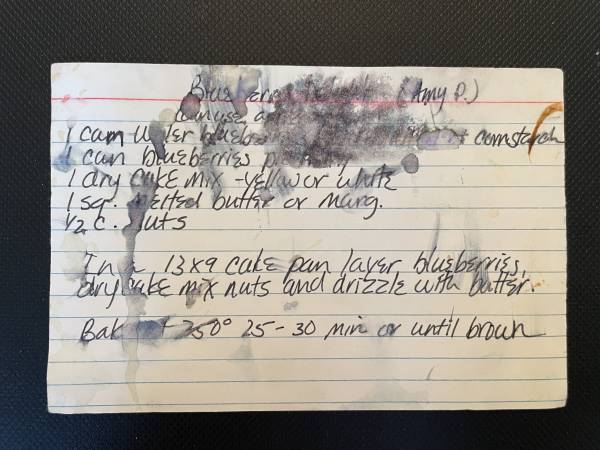 Blueberry Delight (Amy P.)
can use a
1 can water blueberries + cornstarch
1 can blueberries
1 dry cake mix - yellow or white
1 sq. melted butter or marg.
1/2 c. nuts
In a 13x9 cake pan layer blueberries,
dry cake mix nuts and drizzle with butter.
Bake at 250° 25-30 min or until brown